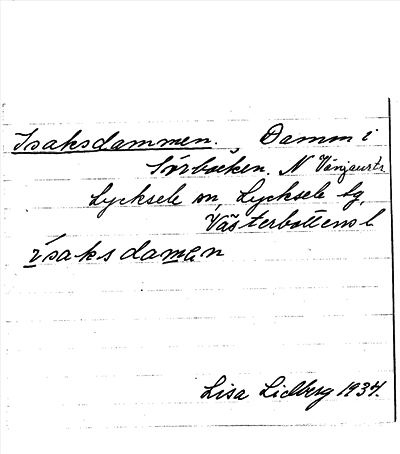 Isaksdammen. Damm i
Sörbäcken. N Vänjaurtr.
Lycksele sn, Lycksele lg,
Västerbottens l
ìsaksdamen
Lisa Lidberg 1934.